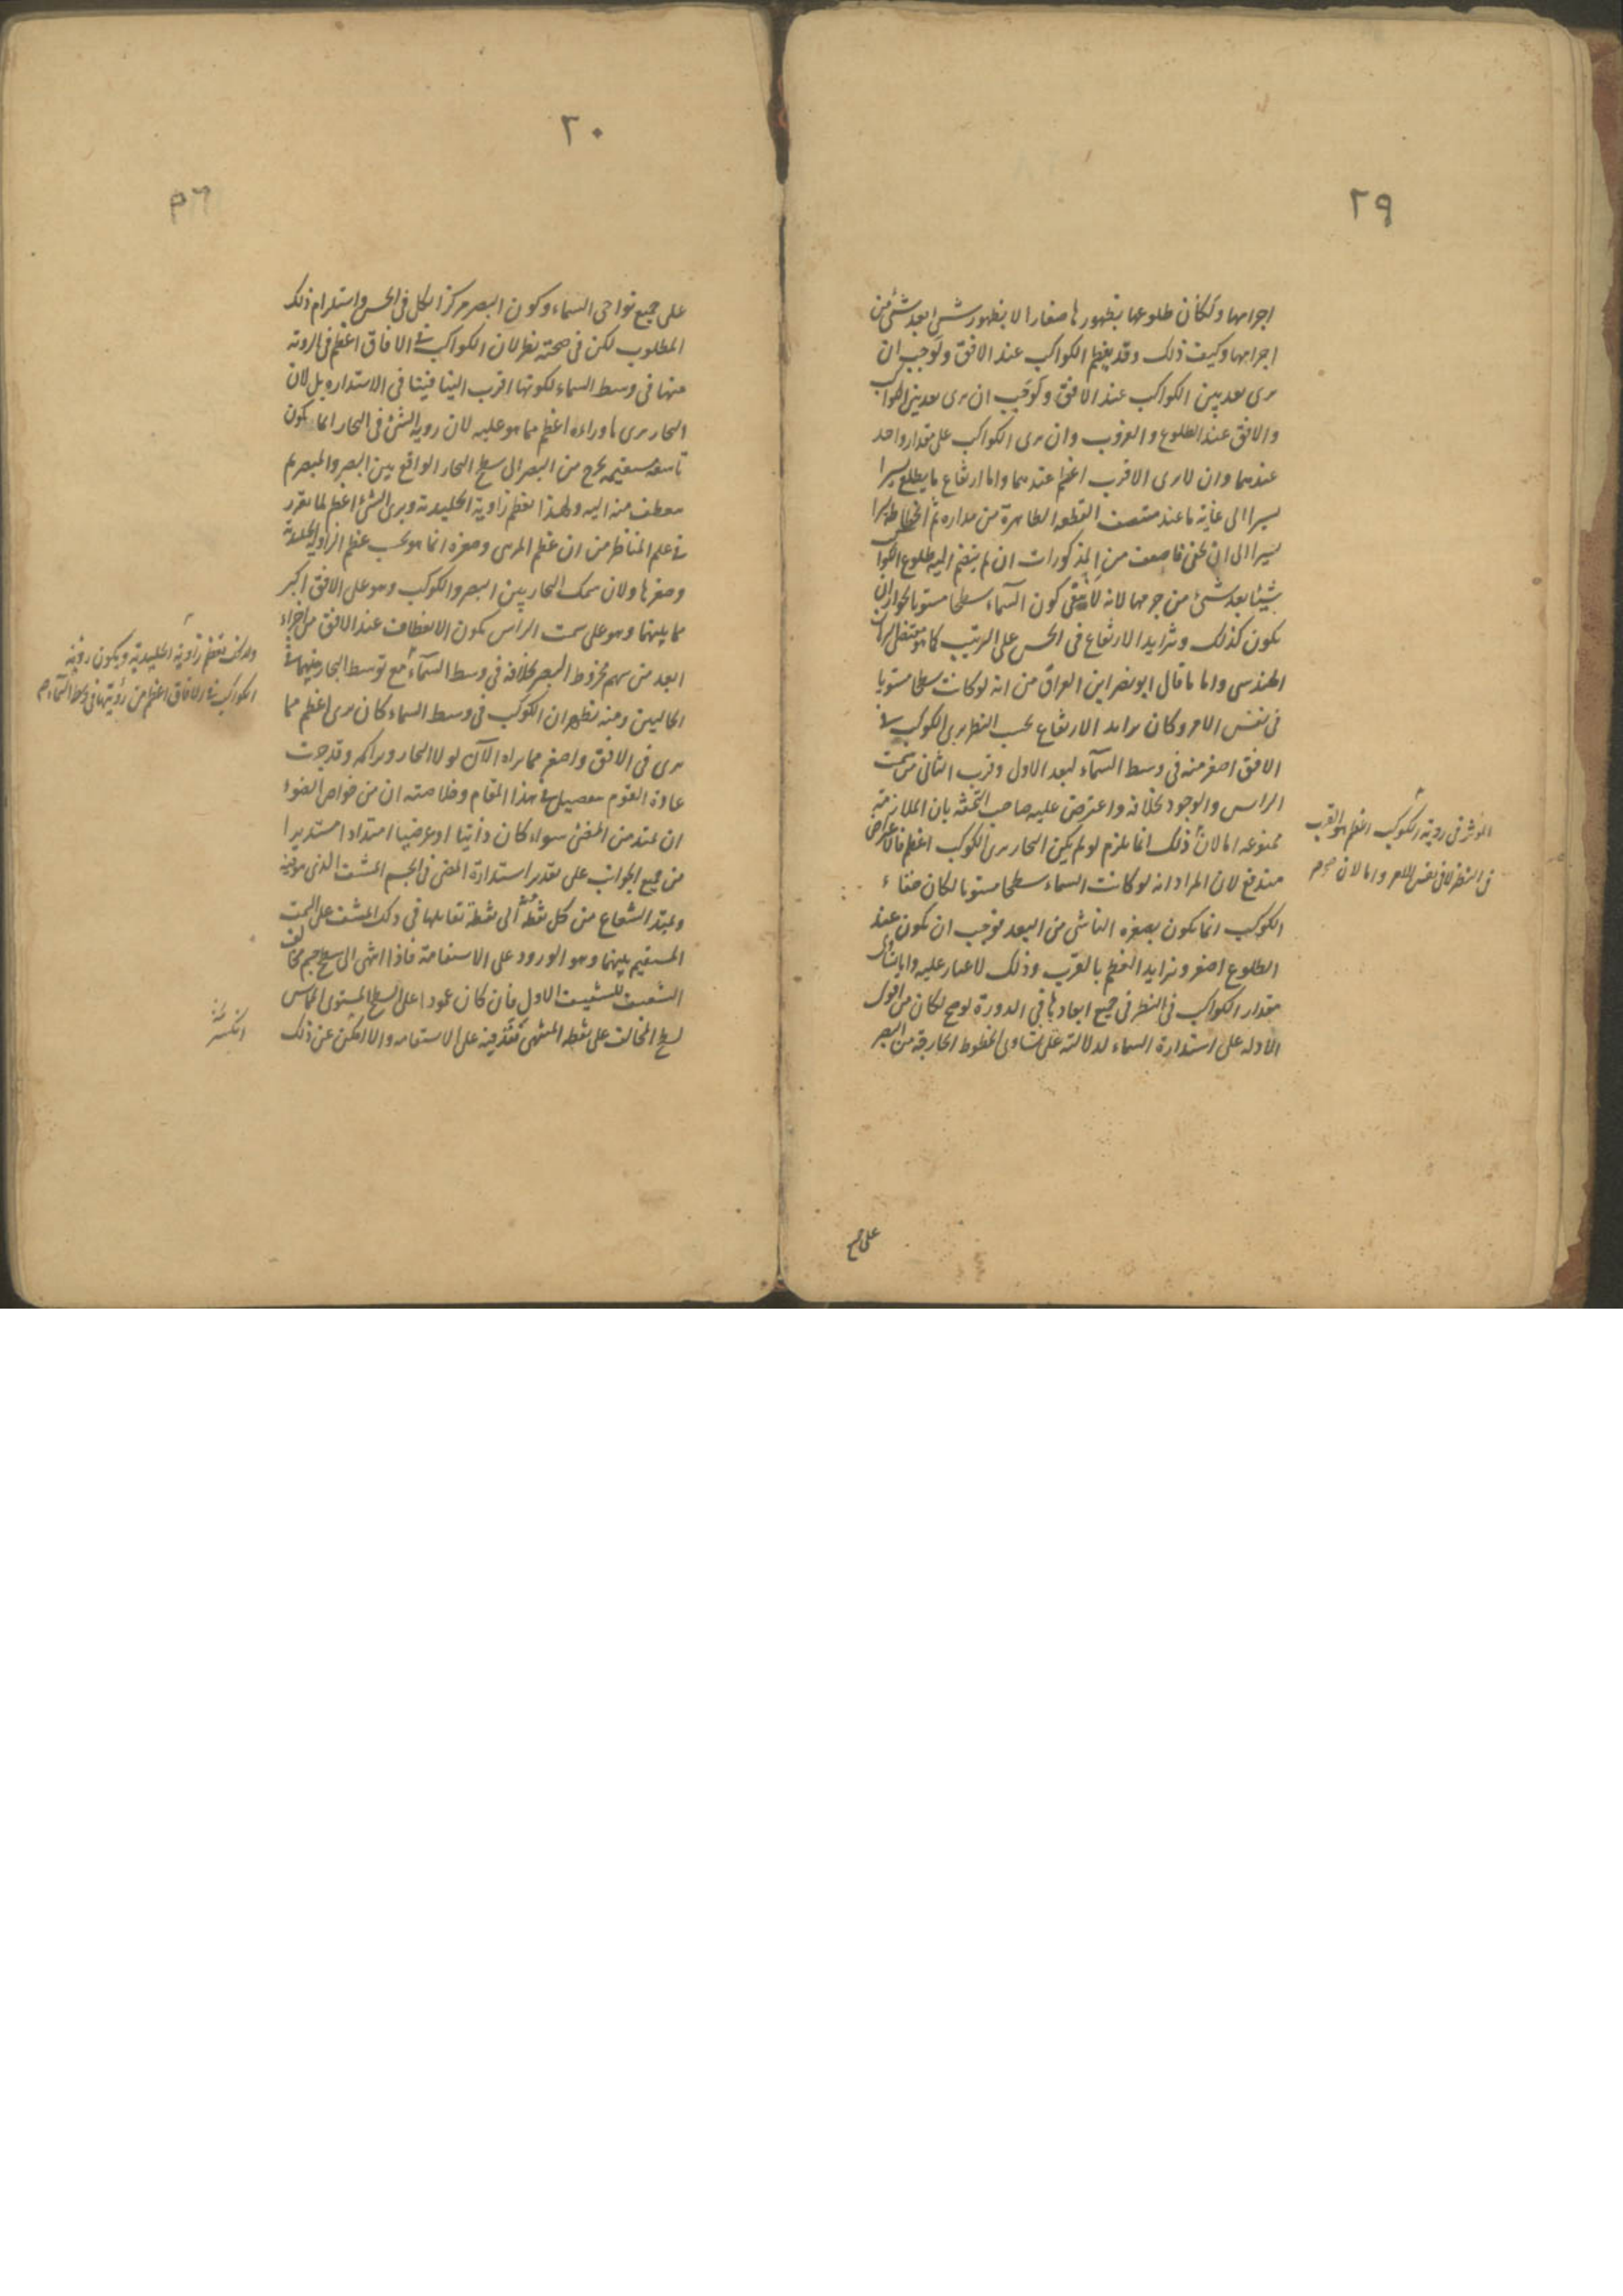 ٢٩
اجرامها ولكان طلوعها بظهورها صغارا لا بظهور شئ بعد شئ من
اجرامها وكيف ذلك وقد يعظم الكواكب عند الافق ولوجب ان
يرى بعد بين الكواكب عند الافق ولوجب ان يرى بعد بين الكواكب
والافق عند الطلوع والغروب وان يرى الكواكب على مقدار واحد
عندهما وان لا يرى الاقرب اعظم عندهما واما ارتفاع ما يطلع يسيرا
يسيرا الى غاية ما عند منتصف القطعة الظاهرة من مداره ثم انحطاطه يسيرا
يسيرا الى ان يخفى فاضعف من المذكورات ان لم ينضم اليه طلوع الكواكب
شيئا بعد شئ من جرمها لانه لا ينفى كون السماء سطحا مستويا لجواز ان
يكون كذلك وتزايد الارتفاع فى الحس على الترتيب كما هو مقتضى البرهان
الهندسى واما ما قال ابو نصر ابن العراق من انه لو كانت سطحا مستويا
فى نفس الامر وكان تزايد الارتفاع بحسب النظر يرى الكوكب فى
الافق اصغر منه فى وسط السماء لبعد الاول وقرب الثانى من سمت
الراس والوجود بخلافه واعترض عليه صاحب التحفة بان الملازمة
ممنوعة اما لان ذلك انما يلزم لو لم يكن البخار يرى الكوكب اعظم فالاعتراض
مندفع لان المراد انه لو كانت السماء سطحا مستويا لكان خفاء
الكوكب انما يكون بصغره الناشى من البعد فوجب ان يكون عند
الطلوع اصغر ويزايد العظم بالقرب وذلك لا غبار عليه واما تساوى
مقدار الكواكب فى النظر فى جميع ابعادها فى الدورة لو صح لكان من اقوى
الادلة على استدارة السماء لدلالته على تساوى الخطوط الخارجة من البصر
المؤثر فى رؤية الكوكب اعظم هو القرب
فى النظر لا فى نفس الامر واما لان
على جميع
٣٠
على جميع نواحى السماء وكون البصر مركز الكل فى الحس واستلزام ذلك
المطلوب لكن فى صحته نظر لان الكواكب فى الافاق اعظم فى الروية
منها فى وسط السماء لكونها اقرب الينا فيتنافى الاستدارة بل لان
البخار يرى ما وراءه اعظم مما هو عليه لان روية الشئ فى البخار انما يكون
باشعة مستقيمة يخرج من البصر الى سطح البخار الواقع بين البصر والمبصر ثم
ينعطف منه اليه ولهذا يعظم زاوية الجليدية ويرى الشئ اعظم لما تقرر
فى علم المناظر من ان عظم المرئى وصغره انما هو بحسب عظم الزاوية الجليدية
وصغرها ولان سمك البخار بين البصر والكوكب وهو على الافق اكبر
مما بينهما وهو على سمت الراس يكون الانعطاف عند الافق من اجزاء
ابعد من سهم مخروط البصر بخلافه فى وسط السماء مع توسط البخار بينهما فى
الحالين ومنه يظهر ان الكوكب فى وسط السماء كان يرى اعظم مما
يرى فى الافق واصغر مما يراه الآن لولا البخار وتراكمه وقد جرت
عادة القوم بتفصيل فى هذا المقام وخلاصته ان من خواص الضوء
ان يمتد من المضئ سواء كان ذاتيا او عرضيا امتدادا مستديرا
من جميع الجوانب على تقدير استدارة المضئ فى الجسم المشف الذى هو فيه
ويمتد الشعاع من كل نقطة منه الى نقطة تقابلها فى ذلك المشف على السمت
المستقيم بينهما وهو الورود على الاستقامة فاذا انتهى الى سطح جسم مخالف
الشفيف للشفيف الاول فان كان عمودا على السطح المستوى المماس
لسطح المخالف على نقطة المنتهى نفذ فيه على الاستقامة والا امكن عن ذلك
ولذلك تعظم زاوية الجليدية ويكون رؤية
الكواكب فى الافاق اعظم من رؤيتها فى وسط السماء
انكسر